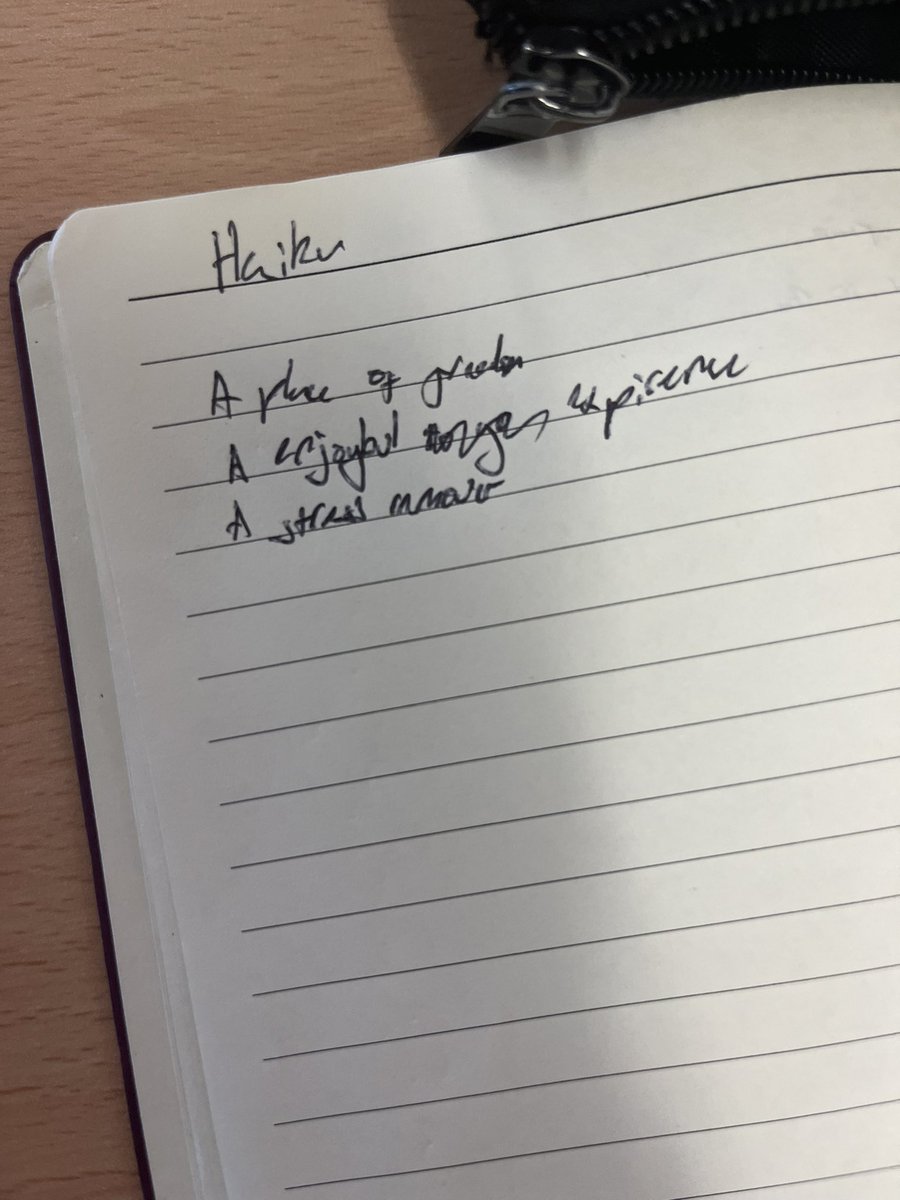 Haiku
A place of freedom
A enjoybul expirence
A stress remover